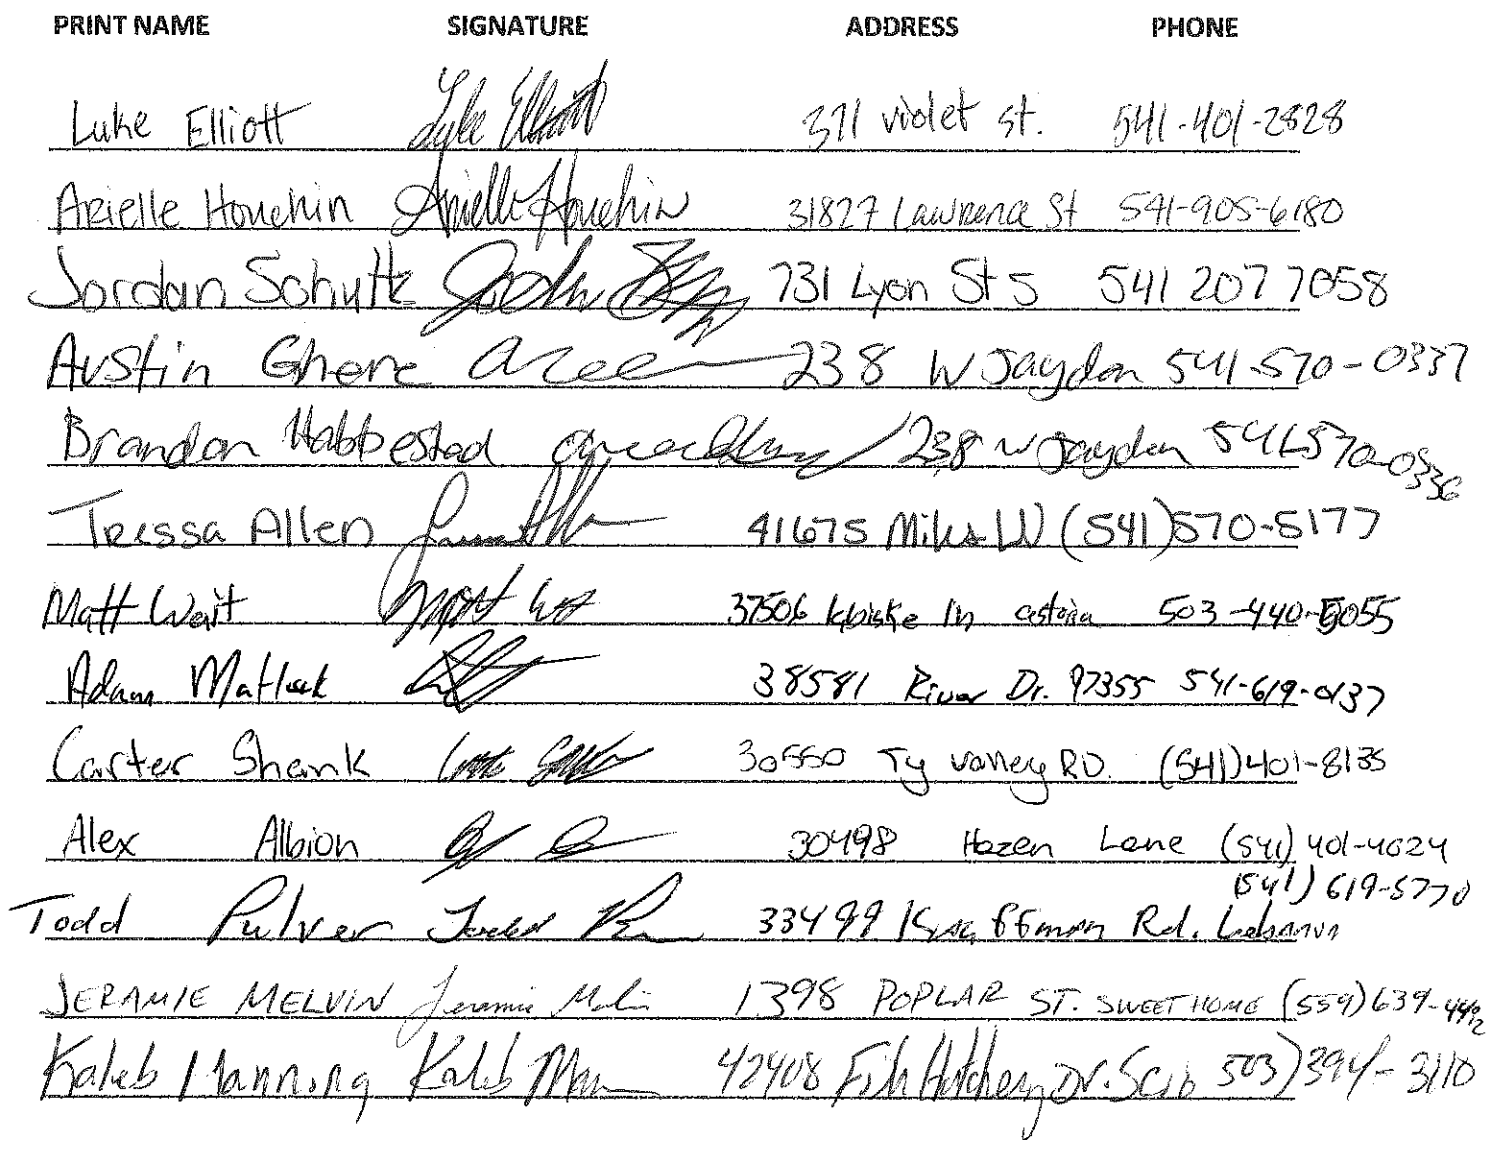 PRINT NAME SIGNATURE ADDRESS PHONE
Luke Elliott Luke Elliott 371 violet st. 541-401-2828
Arielle Houchin Arielle Houchin 31827 Lawrence St 541-905-6180
Jordan Schultz 731 Lyon St S 541 207 7058
Austin Ghere 238 W Jayden 541-570-0337
Brandon Habbestad 238 W Jayden 541-570-0336
Tressa Allen 41675 (541)570-5177
Matt Wait 37506 ln astoria 503-440-5055
Adam Matlock 38581 River Dr. 97355 541-619-0137
Carter Shank 30550 Ty valley RD. (541)401-8135
Alex Albion 30498 Hazen Lane (541) 401-4024
(541) 619-5770
Todd Pulver Todd 33499 Rd. Lebanon
JERAMIE MELVIN Jeramie Melvin 1398 POPLAR ST. SWEET HOME (559)639-4492
Kaleb Manning Kaleb 42408 Fish Hatchery Dr. Scio 503)394-3110